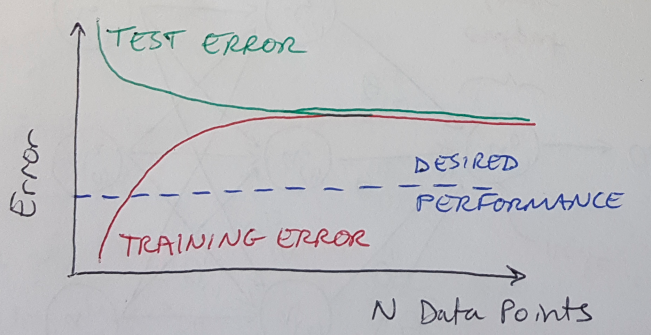 TEST ERROR
Error
DESIRED
PERFORMANCE
TRAINING ERROR
N Data Points